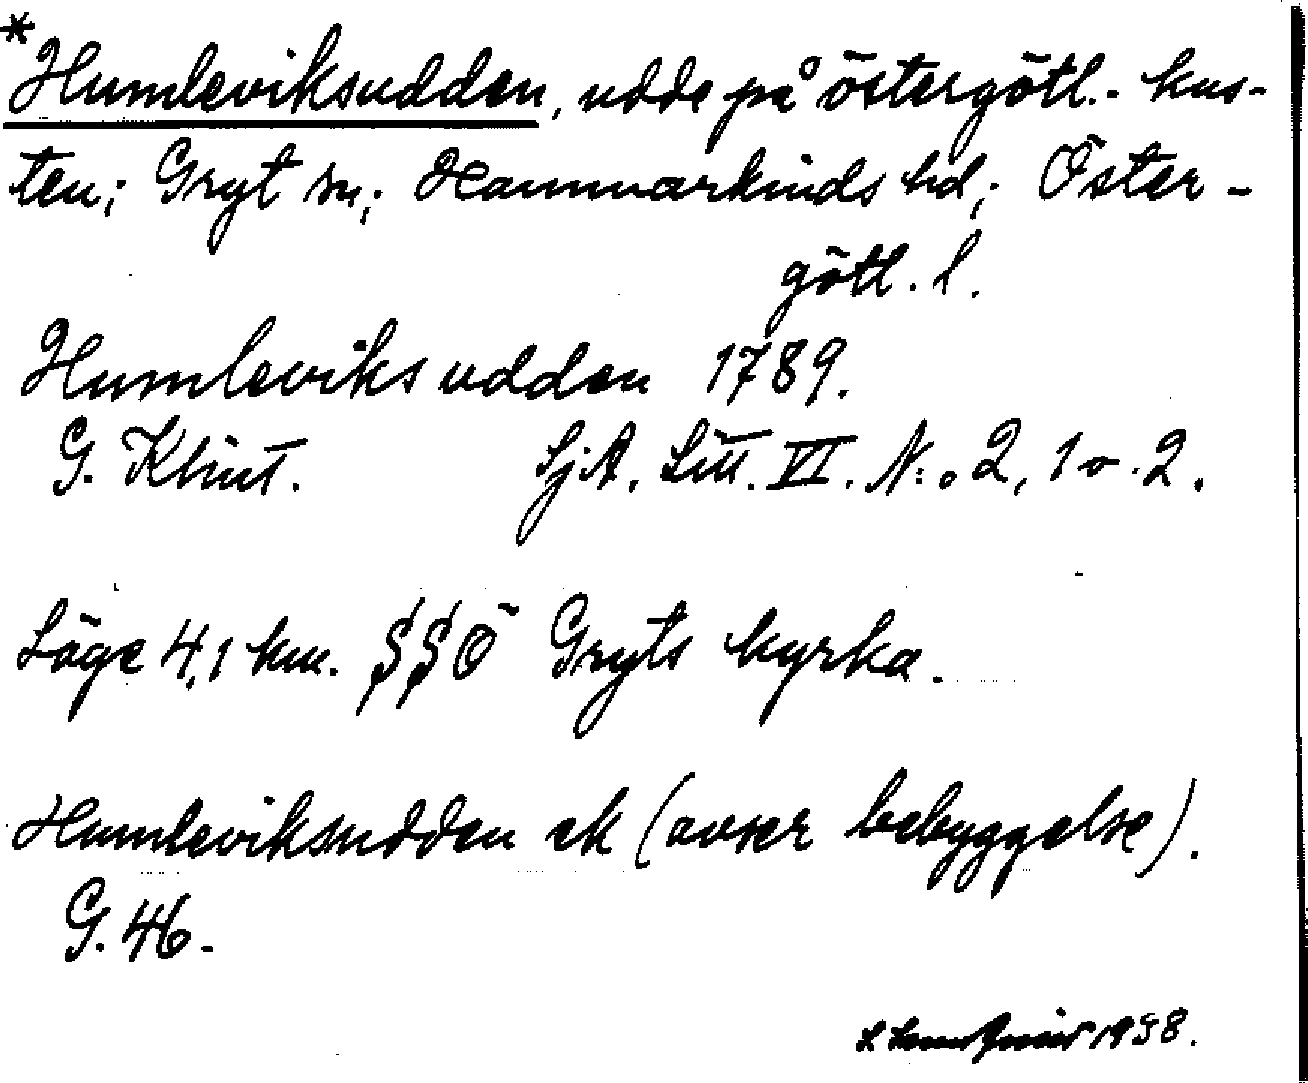 *Humleviksudden, udde på östergötl.- kus-
ten; Gryt sn; Hammarkinds hd; Öster-
götl. l.
Humleviks udden 1789.
G. Klint. SjA. Litt. VI. N:o 2, 1 o. 2.
Läge 4,1 km. SSÖ Gryts kyrka.
Humleviksudden ek (avser bebyggelse).
G. 46.
1958.